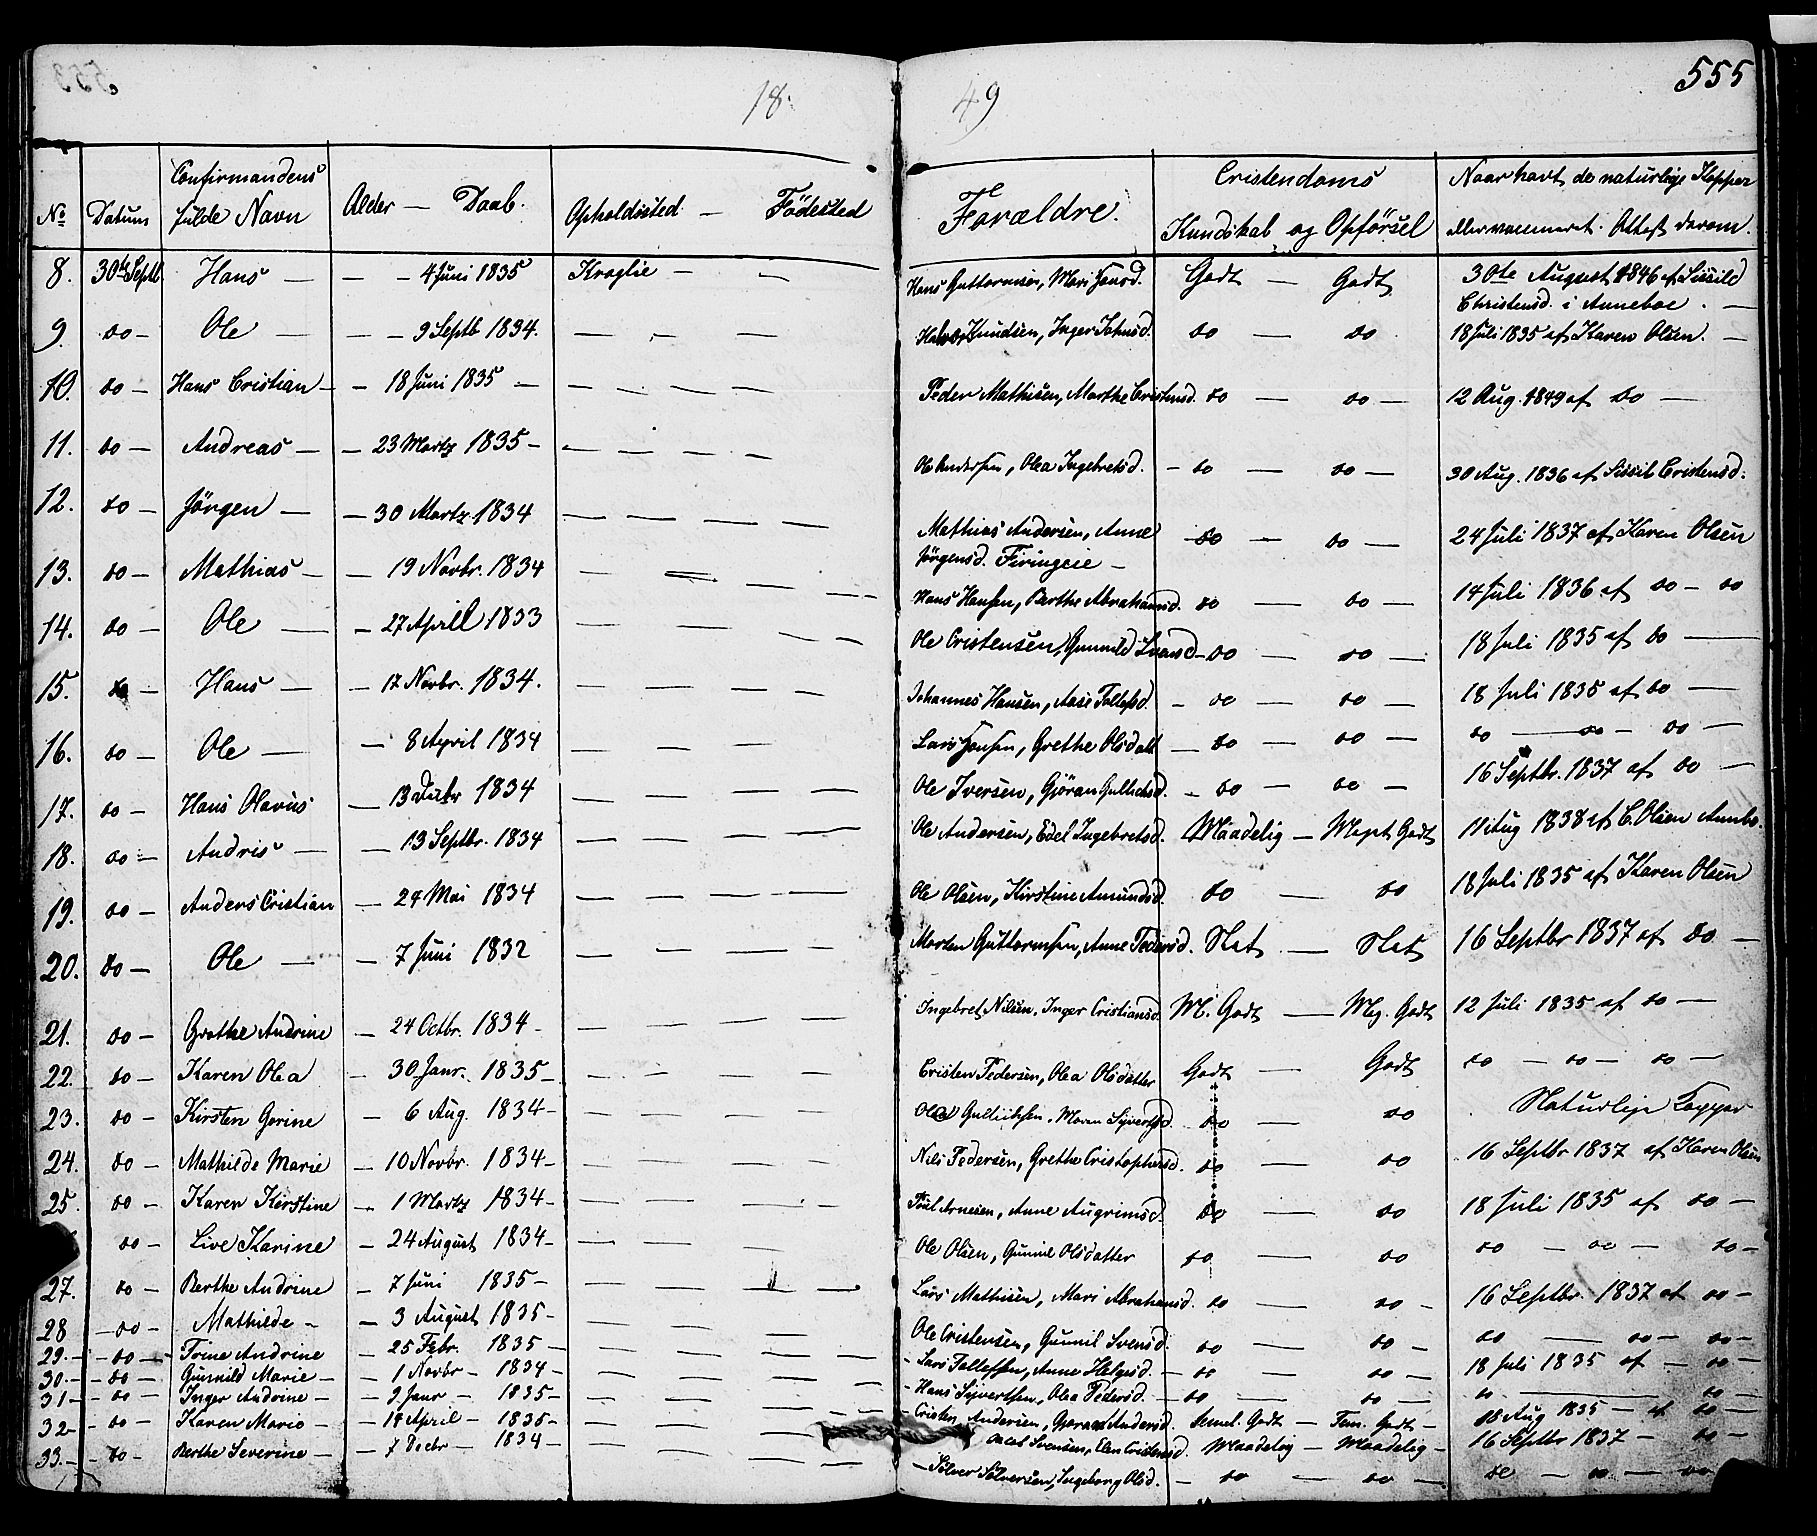 18 49
555
No Datum Confirmandens fulde Navn Alder — Daab. Opholdssted — Födested Forældre. Cristendoms Kundskab og Opförsel Naar havt de naturlige Kopper eller vaccineret. Attest derom.
8. 30te Septb. Hans — — — 4 Juni 1835 Kraglie — — Hans Guttormsen, Mari Hansd. Godt — Godt 30te August 1846 af Sissild
Christensd. i Anneboe. —
9. do — Ole — — — 9 Septb 1834. — — — Knudsen, Inger Johnsd. do — do 18 Juli 1835 af Karen Olsen. —
10. do — Hans Cristian — — 18 Juni 1835 — — — — Peder Mathisen, Marthe Cristensd. do — do — 12 Aug. 1849 af do —
11. do — Andreas — — 23 Martz 1835 — — — — — Ole Andersen, Olea Ingebretsd. — do — do — 30 Aug. 1836 af Sissil Cristensd.
12. do — Jörgen — — 30 Martz 1834 — — — — Mathias Andersen, Anne
Jörgensd. Firingeie — do — do — 24 Juli 1837 af Karen Olsen
13. do — Mathias — — 19 Novbr. 1834 — — — — Hans Hansen, Berthe Abrahamsd. do — do — 14 Juli 1836 af do — do
14. do — Ole — — 27 Aprill 1833 — — — — Ole Cristensen, Gunnild Svensd — do — do — 18 Juli 1835 af do —
15. do — Hans — — 17 Novbr. 1834. — — — — Johannes Hansen, Aase Tollefsd. — do — do — 18 Juli 1835 af do —
16. do — Ole — — 8 April 1834 — — — — Lars Jensen, Grethe Olsdatt — do — do — do — do — do —
17. do — Hans Olavus — 13 Decbr 1834 — — — — Ole Iversen, Gjöran Gullichsd. — do — do — 16 Septbr. 1837 af do —
18. do — Andris — — 13 Septbr. 1834 — — — — Ole Andersen, Edel Ingebretsd. Maadelig — Megt Godt 11 Aug 1838 af C. Olsen Annbo.
19. do — Anders Cristian — 24 Mai 1834 — — — — Ole Olsen, Kirstine Amundsd. do — do 18 Juli 1835 af Karen Olsen
20. do — Ole — — 7 Juni 1832 — — — — Morten Guttormsen, Anne Pedersd. Slet — Slet 16 Septbr 1837 af do —
21. do — Grethe Andrine — 24 Octbr. 1834 — — — — — Ingebret Nilsen, Inger Cristiansd. M. Godt — Meg. Godt 12 Juli 1835 af do —
22. do — Karen Olea — 30 Janr. 1835 — — — — — Cristen Pedersen, Olea Olsdatter Godt — Godt do — do — do —
23. do — Kirsten Gorine — 6 Aug. 1834 — — — — — Ole Gullichsen, Maren Sijvertsd. do — do Naturlige Kopper
24. do — Mathilde Marie — 10 Novbr. 1834 — — — — — Nils Pedersen, Grethe Cristophersd. do — do 16 Septbr 1837 af Karen Olsen
25. do — Karen Kirstine — 1 Martz 1834 — — — — — Poul Arnesen, Anne Augrimsd. do — do 18 Juli 1835 af do —
do — Live Karine — 24 August 1834 — — — — — Ole Olsen, Gunnil Olsdatter do — do do — do — do —
27. do — Berthe Andrine — 7 Juni 1835 — — — — — Lars Mathisen, Mari Abrahamsd. do — do — 16 Septbr. 1837 af do —
28 — do — Mathilde — — 3 August 1835 — — — — — Ole Cristensen, Gunnil Svensd. do — do — do — do — do —
29. — do — Trine Andrine — 25 Febr. 1835 — — — — — Lars Tollefsen, Anne Helgesd. — do — do — 18 Juli 1835 af — do —
30. — do — Gunnild Marie — — 1 Novbr — 1834 — — — — — Hans Sijvertsen, Olea Pedersd. — do — do — do — do —
31 — do — Inger Andrine — — 9 Janr — 1835 — — — — — Cristen Andersen, Andersd. Temel. Godt — Tem. Godt — 18 Aug 1835 — af do —
32 — do — Karen Marie — — 18 April — 1835 — — — — — Svensen, Elen Cristensd. Maadelig — Maadelig — 16 Septbr 1837 — do —
33. — do — Berthe Severine — — 7 Decbr — 1834 — — — — — Sölver Sölversen, Ingeborg Olsd. — do — do — do — do — do